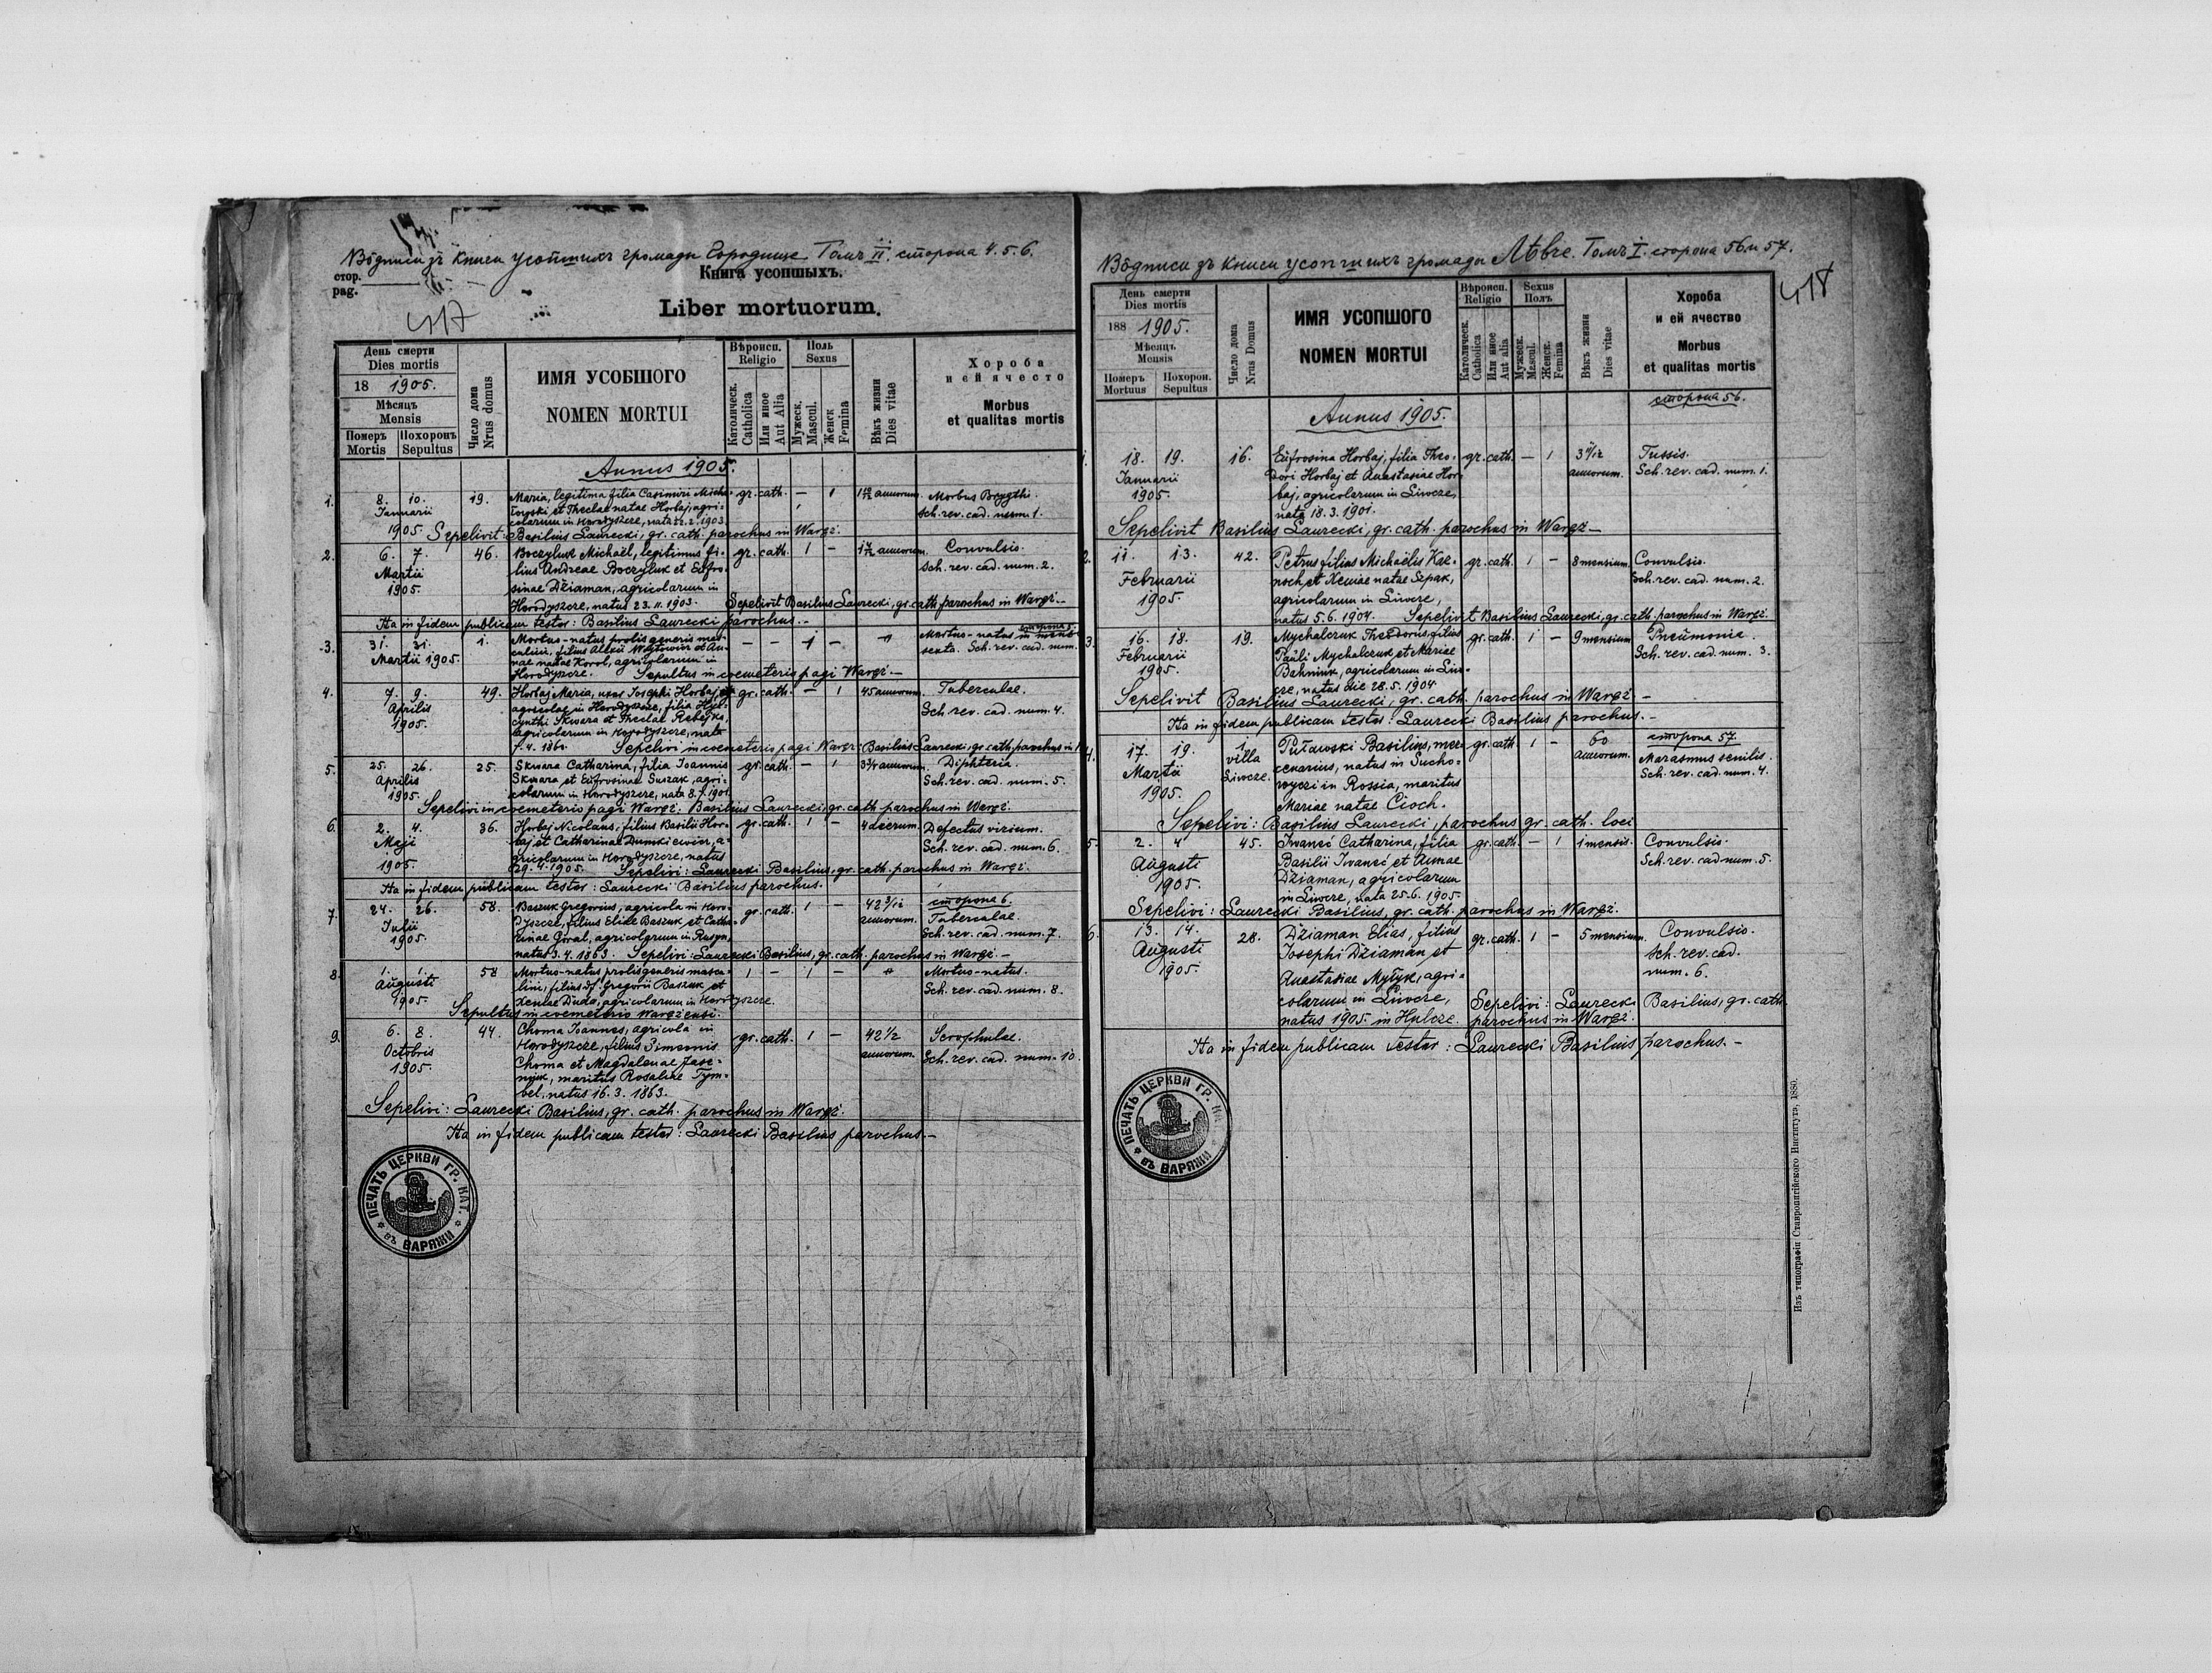 Вôдписи зъ книги усопшихъ громады Городище Томъ II. сторона 4. 5. 6.
Книга усопшыхъ.
стор.
pag.
417
Liber mortuorum.
День смерти
Dies mortis
18 1905.
Мѣсяцъ
Mensis
Померъ Похоронъ
Mortis Sepultus
Число дома
Nrus domus
ИМЯ УСОБШОГО
NOMEN MORTUI
Вѣроисп.
Religio
Католическ.
Catholica
Или иное
Aut Alia
Полъ
Sexus
Мужеск.
Mascul.
Женск
Femina
Вѣкъ жизни
Dies vitae
Хороба
и ей ячесто
Morbus
et qualitas mortis
Annus 1905.
1. 8. 10. 19. Maria, legitima filia Casimiri Micha- gr. cath. — 1 annorum Morbus Brygthi.
Januarii łowski et Theclae natae Horbaj, agri- Sch. rev. cad. num. 1.
colarum in Horodyszcze, nata 22. 2. 1903.
1905. Sepelivit: Basilius Laurecki, gr. cath. parochus in Waręż.
2. 6. 7. 46. Boczyluk Michaël, legitimus fi- gr. cath. 1 — annorum. Convulsio.
Martii lius Andreae Boczyluk et Eufro- Sch. rev. cad. num. 2.
1905. sinae Dżiaman, agricolarum in
Horodyszcze, natus 23. 11. 1903. Sepelivit Basilius Laurecki, gr. cath. parochus in Waręż. —
Ita in fidem publicam testor: Basilius Laurecki parochus. —
сторона 5.
3. 31. 31. 1. Mortuo-natus prolis generis mas- — — 1 — Mortuo-natus in mense
Martii 1905. culini, filius Alexii Wojtowicz et An- sexto. Sch. rev. cad. num.
nae natae Korol, agricolarum in
Horodyszcze. Sepultus in coemeterio pagi Waręż. —
4. 7. 9. 49. Horbaj Maria, uxor Josephi Horbaj, gr. cath. — 1 45 annorum. Tuberculae.
Aprilis agricolae in Horodyszcze, filia Hya- Sch. rev. cad. num. 4.
1905. cynthi Skwara et Theclae Rebejka,
agricolarum in Horodyszcze, nata
Sepelivi in coemeterio pagi Waręż: Basilius Laurecki, gr. cath. parochus in
5. 25. 26. 25. Skwara Catharina, filia Joannis gr. cath. — 1 3 3/4 annorum. Diphteria.
Aprilis Skwara et Eufrosinae Suszak, agri- Sch. rev. cad. num. 5.
1905. colarum in Horodyszcze, nata 8.
Sepelivi in coemeterio pagi Waręż: Basilius Laurecki, gr. cath. parochus in Waręż.
6. 2. 4. 36. Horbaj Nicolaus, filius Basilii Hor- gr. cath. 1 — 4 dierum. Defectus virium.
Maji baj et Catharinae Dumkiewicz, a- Sch. rev. cad. num. 6.
1905. gricolarum in Horodyszcze, natus
29. 4. 1905. Sepelivi: Laurecki Basilius, gr. cath. parochus in Waręż.
Ita in fidem publicam testor: Laurecki Basilius parochus.
7. 24. 26. 58. Baszuk Gregorius, agricola in Horo- gr. cath. 1 — 42 3/12 сторона 6.
Julii dyszcze, filius Eliae Baszuk et Catha- annorum. Tuberculae.
1905. rinae Goral, agricolarum in Rusyn, Sch. rev. cad. num. 7.
natus 3. 4. 1863. Sepelivi: Laurecki Basilius, gr. cath. parochus in Waręż. —
8. 1. 1. 58 Mortuo-natus prolis generis mascu- 1 — 1 — Mortuo-natus.
Augusti lini, filius Gregorii Baszuk et Sch. rev. cad. num. 8.
1905. Xeniae Duda, agricolarum in Horodyszcze.
Sepultus in coemeterio Waręzensi.
9. 6. 8. 44. Choma Joannes, agricola in gr. cath. 1 — 42 1/2 Scrophulae.
Octobris Horodyszcze, filius Simeonis annorum. Sch. rev. cad. num. 10.
1905. Choma et Magdalenae Jase-
nyuk, maritus Rosaliae Tym-
bel, natus 16. 3. 1863.
Sepelivi: Laurecki Basilius, gr. cath. parochus in Waręż.
Ita in fidem publicam testor: Laurecki Basilius parochus. —
ПЕЧАТЬ ЦЕРКВИ ГР. КАТ. * въ ВАРЯЖИ *
Вôдписи зъ книги усопшихъ громады Лѣвче. Томъ I. сторона 56 и 57.
418
День смерти
Dies mortis
188 1905.
Мѣсяцъ
Mensis
Померъ Похорон.
Mortuus Sepultus
Число дома
Nrus Domus
ИМЯ УСОПШОГО
NOMEN MORTUI
Вѣроисп.
Religio
Католическ.
Catholica
Или иное
Aut alia
Sexus
Полъ
Мужеск.
Mascul.
Женск.
Femina
Вѣкъ жизни
Dies vitae
Хороба
и ей ячество
Morbus
et qualitas mortis
Annus 1905.
сторона 56.
1. 18. 19. 16. Eufrosina Horbaj, filia Theo- gr. cath. — 1 annorum. Tussis.
Januarii dori Horbaj et Anastasiae Hor- Sch. rev. cad. num. 1.
1905. baj, agricolarum in Liwcze,
nata 18. 3. 1901.
Sepelivit Basilius Laurecki, gr. cath. parochus in Waręż —
2. 11. 13. 42. Petrus filius Michaëlis Kac- gr. cath. 1 — 8 mensium. Convulsio.
Februarii noch et Xeniae natae Szpak, Sch. rev. cad. num. 2.
1905. agricolarum in Liwcze,
natus 5. 6. 1904. Sepelivit Basilius Laurecki, gr. cath. parochus in Waręż.
3. 16. 18. 19. Mychalczuk Theodorus, filius gr. cath. 1 — 9 mensium. Pneumonia.
Februarii Pauli Mychalczuk et Mariae Sch. rev. cad. num. 3.
1905. Bahniuk, agricolarum in Liw-
cze, natus die 28. 5. 1904.
Sepelivit Basilius Laurecki, gr. cath. parochus in Waręż —
Ita in fidem publicam testor: Laurecki Basilius parochus. —
4. 17. 19. 1. Puławski Basilius, mer- gr. cath. 1 — 60 сторона 57.
Martii villa cenarius, natus in Sucho- annorum. Marasmus senilis.
1905. Liwcze. wyczi in Rossia, maritus Sch. rev. cad. num. 4.
Mariae natae Cioch.
Sepelivi: Basilius Laurecki, parochus gr. cath. loci
5. 2. 4. 45. Iwaneć Catharina, filia gr. cath. — 1 1 mensis. Convulsio.
Augusti Basilii Iwaneć et Annae Sch. rev. cad. num. 5.
1905. Dżiaman, agricolarum
in Liwcze, nata 25. 6. 1905.
Sepelivi: Laurecki Basilius, gr. cath. parochus in Waręż.
6. 13. 14. 28. Dżiaman Elias, filius gr. cath. 1 — 5 mensium. Convulsio.
Augusti Josephi Dżiaman et Sch. rev. cad.
1905. Anastasiae Mytyk, agri- num. 6.
colarum in Liwcze, Sepelivi: Laurecki Basilius, gr. cath.
natus 1905. in Hulcze. parochus in Waręż.
Ita in fidem publicam testor: Laurecki Basilius parochus. —
ПЕЧАТЬ ЦЕРКВИ ГР. * въ ВАРЯЖИ *
Изъ типографіи Ставропигійского Института, 1880.